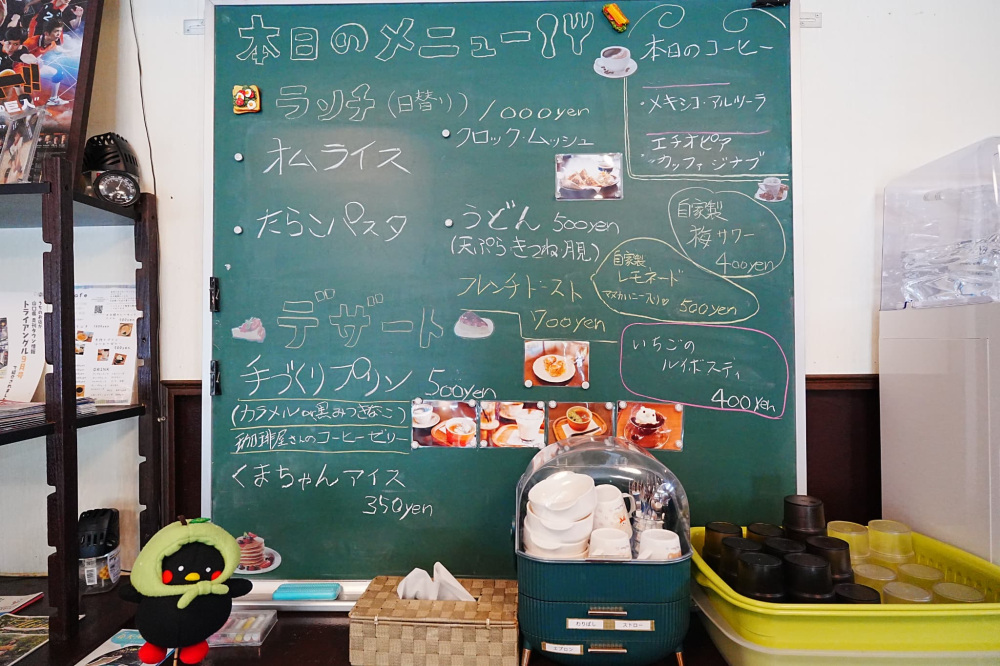 本日のメニュー
ランチ(日替り) 1000yen
オムライス
・クロック・ムッシュ
たらこパスタ
・うどん 500yen
(天ぷら きつね 月見)
フレンチトースト
700yen
デザート
手づくりプリン 500yen
(カラメル or 黒みつきなこ)
珈琲屋さんのコーヒーゼリー
くまちゃんアイス
350yen
本日のコーヒー
・メキシコ・アルツーラ
エチオピア
・カッファ ジナブ
自家製
梅サワー
400yen
自家製
レモネード
500yen
いちごの
ルイボスティ
400yen
トライアングル
わりばし
ストロー
エプロン